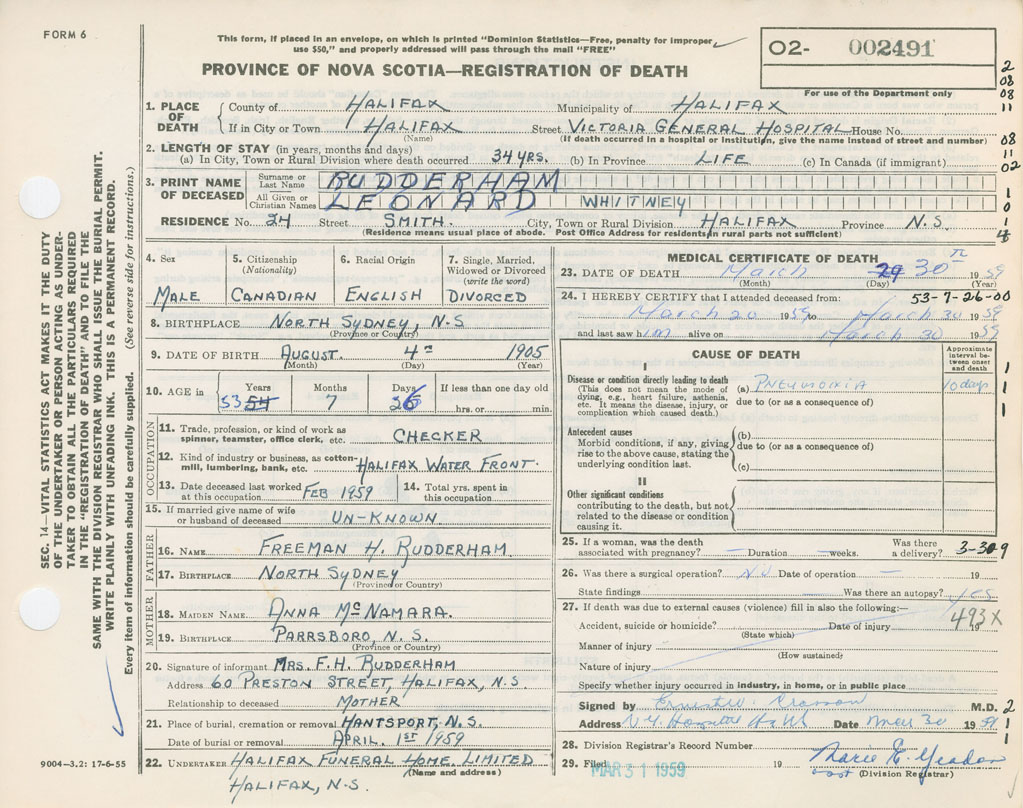 FORM 6
This form, if placed in an envelope, on which is printed "Dominion Statistics—Free, penalty for improper
use $50," and properly addressed will pass through the mail "FREE"
O2- 002491
For use of the Department only
PROVINCE OF NOVA SCOTIA—REGISTRATION OF DEATH
1. PLACE OF DEATH County of HALIFAX Municipality of HALIFAX
If in City or Town HALIFAX Street VICTORIA GENERAL HOSPITAL House No.
(Name) (If death occurred in a hospital or institution, give the name instead of street and number)
2. LENGTH OF STAY (in years, months and days)
(a) In City, Town or Rural Division where death occurred 34 YRS. (b) In Province LIFE (c) In Canada (if immigrant)
3. PRINT NAME OF DECEASED Surname or Last Name RUDDERHAM
All Given or Christian Names LEONARD WHITNEY
RESIDENCE No. 24 Street SMITH. City, Town or Rural Division HALIFAX Province N.S.
(Residence means usual place of abode. Post Office Address for residents in rural parts not sufficient)
2
08
08
11
08
11
02
1
0
1
4
4. Sex MALE
5. Citizenship (Nationality) CANADIAN
6. Racial Origin ENGLISH
7. Single, Married, Widowed or Divorced (write the word) DIVORCED
8. BIRTHPLACE NORTH SYDNEY, N.S
(Province or Country)
9. DATE OF BIRTH AUGUST. 4TH 1905
(Month) (Day) (Year)
10. AGE in Years 53 54 Months 7 Days 26 If less than one day old hrs. or min.
OCCUPATION
11. Trade, profession, or kind of work as spinner, teamster, office clerk, etc. CHECKER
12. Kind of industry or business, as cotton-mill, lumbering, bank, etc. HALIFAX WATER FRONT.
13. Date deceased last worked at this occupation FEB 1959 14. Total yrs. spent in this occupation
15. If married give name of wife or husband of deceased UN-KNOWN
FATHER
16. NAME FREEMAN H. RUDDERHAM.
17. BIRTHPLACE NORTH SYDNEY
(Province or Country)
MOTHER
18. MAIDEN NAME ANNA McNAMARA.
19. BIRTHPLACE PARRSBORO, N.S.
(Province or Country)
20. Signature of informant MRS. F.H. RUDDERHAM
Address 60 PRESTON STREET, HALIFAX, N.S.
Relationship to deceased MOTHER
21. Place of burial, cremation or removal HANTSPORT, N.S.
Date of burial or removal APRIL. 1ST 1959
22. UNDERTAKER HALIFAX FUNERAL HOME. LIMITED
(Name and address)
HALIFAX, N.S.
MEDICAL CERTIFICATE OF DEATH
23. DATE OF DEATH March 29 30th 1959
(Month) (Day) (Year)
24. I HEREBY CERTIFY that I attended deceased from: 53-7-26-00
March 20 1959 to March 30 1959
and last saw him alive on March 30 1959
CAUSE OF DEATH
Approximate interval between onset and death
I
Disease or condition directly leading to death
(This does not mean the mode of dying, e.g., heart failure, asthenia, etc. It means the disease, injury, or complication which caused death.)
(a) PNEUMONIA 10 days
due to (or as a consequence of)
Antecedent causes
Morbid conditions, if any, giving rise to the above cause, stating the underlying condition last.
(b)
due to (or as a consequence of)
(c)
II
Other significant conditions
contributing to the death, but not related to the disease or condition causing it.
1
1
1
25. If a woman, was the death associated with pregnancy? — Duration — weeks. Was there a delivery? 3-30 9
26. Was there a surgical operation? No Date of operation — 19
State findings Was there an autopsy? yes
27. If death was due to external causes (violence) fill in also the following:—
493X
Accident, suicide or homicide? Date of injury 19
(State which)
Manner of injury
(How sustained)
Nature of injury
Specify whether injury occurred in industry, in home, or in public place
Signed by M.D. 2
Address Date Mar 30 1959 1
28. Division Registrar's Record Number 1
29. Filed MAR 31 1959 19 Marie E.
(Division Registrar)
SEC. 14—VITAL STATISTICS ACT MAKES IT THE DUTY
OF THE UNDERTAKER OR PERSON ACTING AS UNDER-
TAKER TO OBTAIN ALL THE PARTICULARS REQUIRED
IN THE "REGISTRATION OF DEATH" AND TO FILE THE
SAME WITH THE DIVISION REGISTRAR WHO SHALL ISSUE THE BURIAL PERMIT.
WRITE PLAINLY WITH UNFADING INK. THIS IS A PERMANENT RECORD.
Every item of information should be carefully supplied. (See reverse side for instructions.)
9004-3.2: 17-6-55